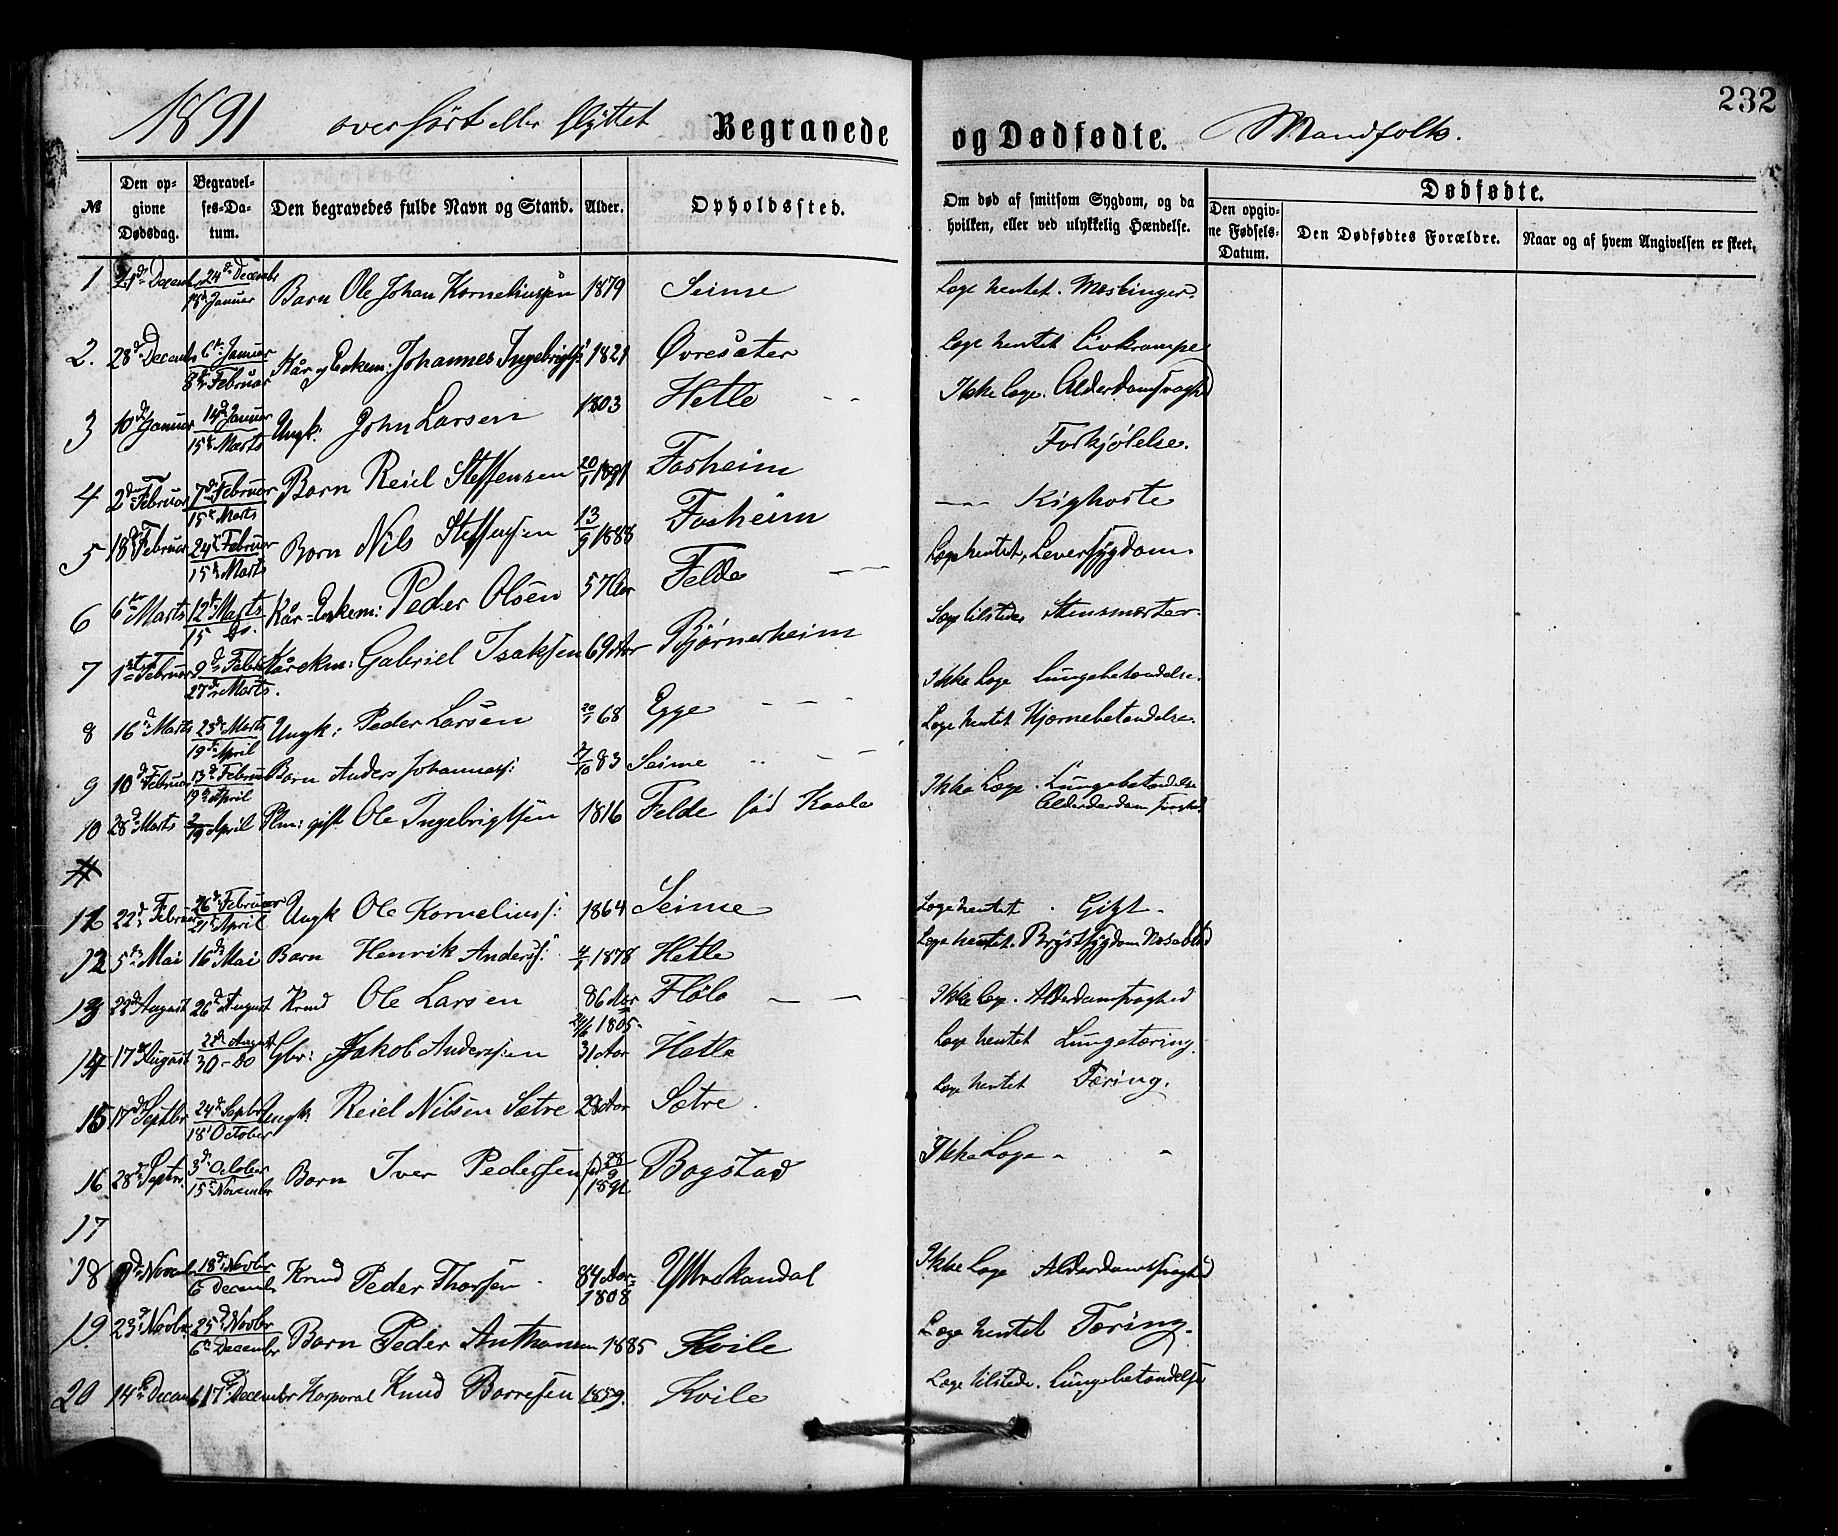 232
1891 overført eller flyttet Begravede og Dødfødte. Mandfolk.
№ Den opgivne Dødsdag. Begravelses-Datum. Den begravedes fulde Navn og Stand. Alder. Opholdssted. Om død af smitsom Sygdom, og da hvilken, eller ved ulykkelig Hændelse. Dødfødte.
Den opgivne Fødsels-Datum. Den Dødfødtes Forældre. Naar og af hvem Angivelsen er skeet.
1 21de December 24de Decembr 18de Januar Barn Ole Johan Korneliussen 1879 Seime Læge hentet. Mæslinger.
2. 28de Decembr 6te Januar 8de Februar Kår og Enkem: Johannes Ingebrigts: 1821 Øvresæter Læge hentet Livkrampe
3 10de Januar 14de Januar 15de Marts Ungk: John Larsen 1803 Hetle Ikke Læge. Alderdomsvaghed
4 2den Februar 7de Februar 15de Marts Barn Reiel Steffensen 20/1 1891 Fosheim Forkjølelse.
5 18de Februar 24de Februar 15de Marts Barn Nils Steffensen 13/9 1888 Fosheim Kighoste
6 6te Marts 12te Marts 15 do. Kår-Enkem: Peder Olsen 57 Aar Felde Læge hentet, Leversygdom.
7 1ste Februar 9de Febr 27de Marts. Kårekm: Gabriel Isaksen 69 Aar Bjørnerheim Læge tilstede Stensmerter.
8 16de Marts 23de Marts 19de April Ungk: Peder Larsen 20/1 68 Egge Ikke Læge Lungebetændelse.
9 10de Februar 13de Februar 19de April Barn Anders Johanness: 7/10 83 Seime Læge hentet Hjernebetændelse.
10 28de Marts 2/19 April Plm: gift Ole Ingebrigtsen 1816 Felde fød Kaale Ikke Læge. Lungebetændelse
Alderdom
11 22de Februar 26de Februar 21de April Ungk Ole Korneliuss: 1864 Seime Læge hentet. Gigt.
12 5te Mai 16de Mai Barn Henrik Anderss: 1878 Hetle Læge hentet. Brystsygdom Næseblod
13 22de August 26de August Kmd Ole Larsen 86 Aar 24/6 1805 Flølo Ikke Læge. Alderdomsvaghed
14 17de August 22de August 30 - do Gbr: Jakob Anderssen 31 Aar Hetle Læge hentet Lungetæring.
15 17de Septbr 24de Septbr 18 October Ungk: Reiel Nilsen Sætre 28 Aar Sætre. Læge hentet Tæring.
16 28de Septr: 3de October 15de November Barn Iver Pedersen fød 28/9 1891 Bogstad Ikke Læge
17
18 9de Novembr 18de Novbr 6 December Kmd Peder Thorsen 84 Aar 1808 Yttrekandal Ikke Læge Alderdomsvaghed
19. 23de Novbr 25de Novbr 6te Decembr Barn Peder Anthonsen 1885 Kvile Læge hentet Tæring.
20 14de Decembr 17de Decembr Korporal Knud Borresen 1859. Kvile Læge tilstede. Lungebetændelse